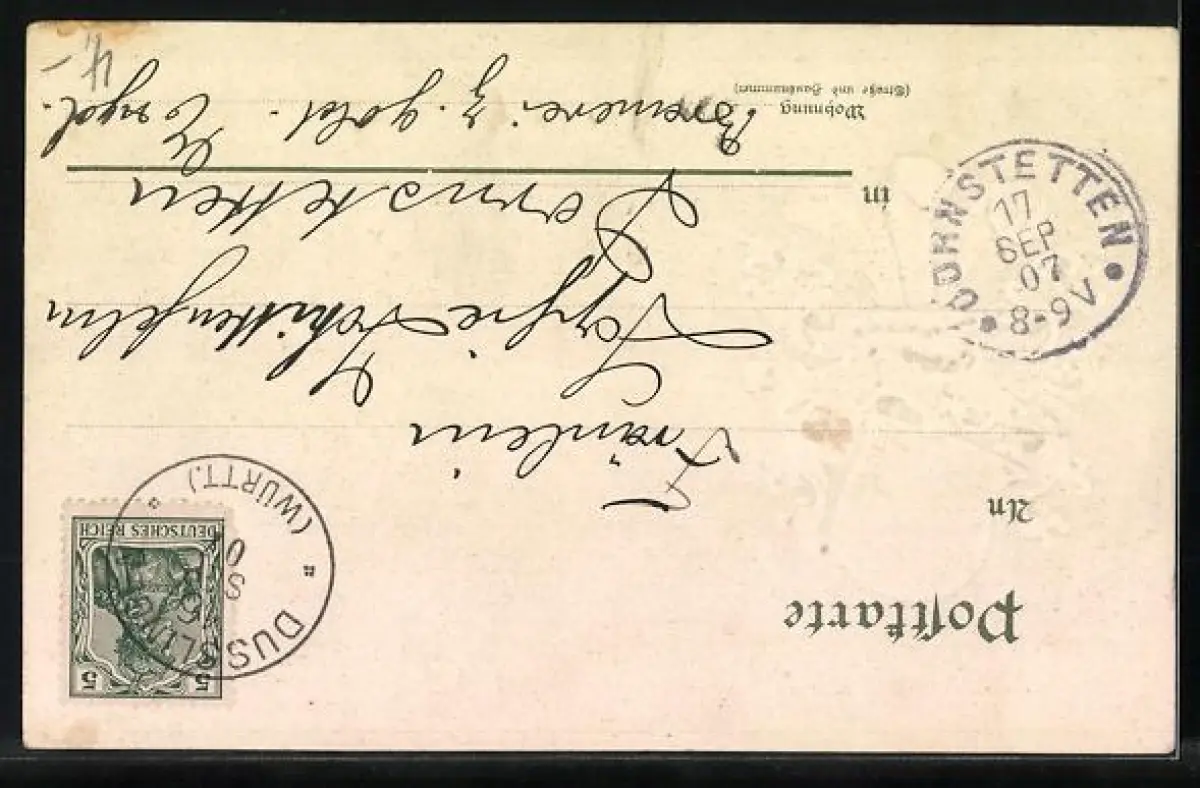 Postkarte
DEUTSCHES REICH
5 5
DUSSLINGEN
(WÜRTT.)
An
Fräulein
Sophie Schittenhelm
in Dornstetten
Wohnung
(Straße und Hausnummer)
Brauerei z. gold. Engel.
DORNSTETTEN
17
SEP
07
8-9V
4